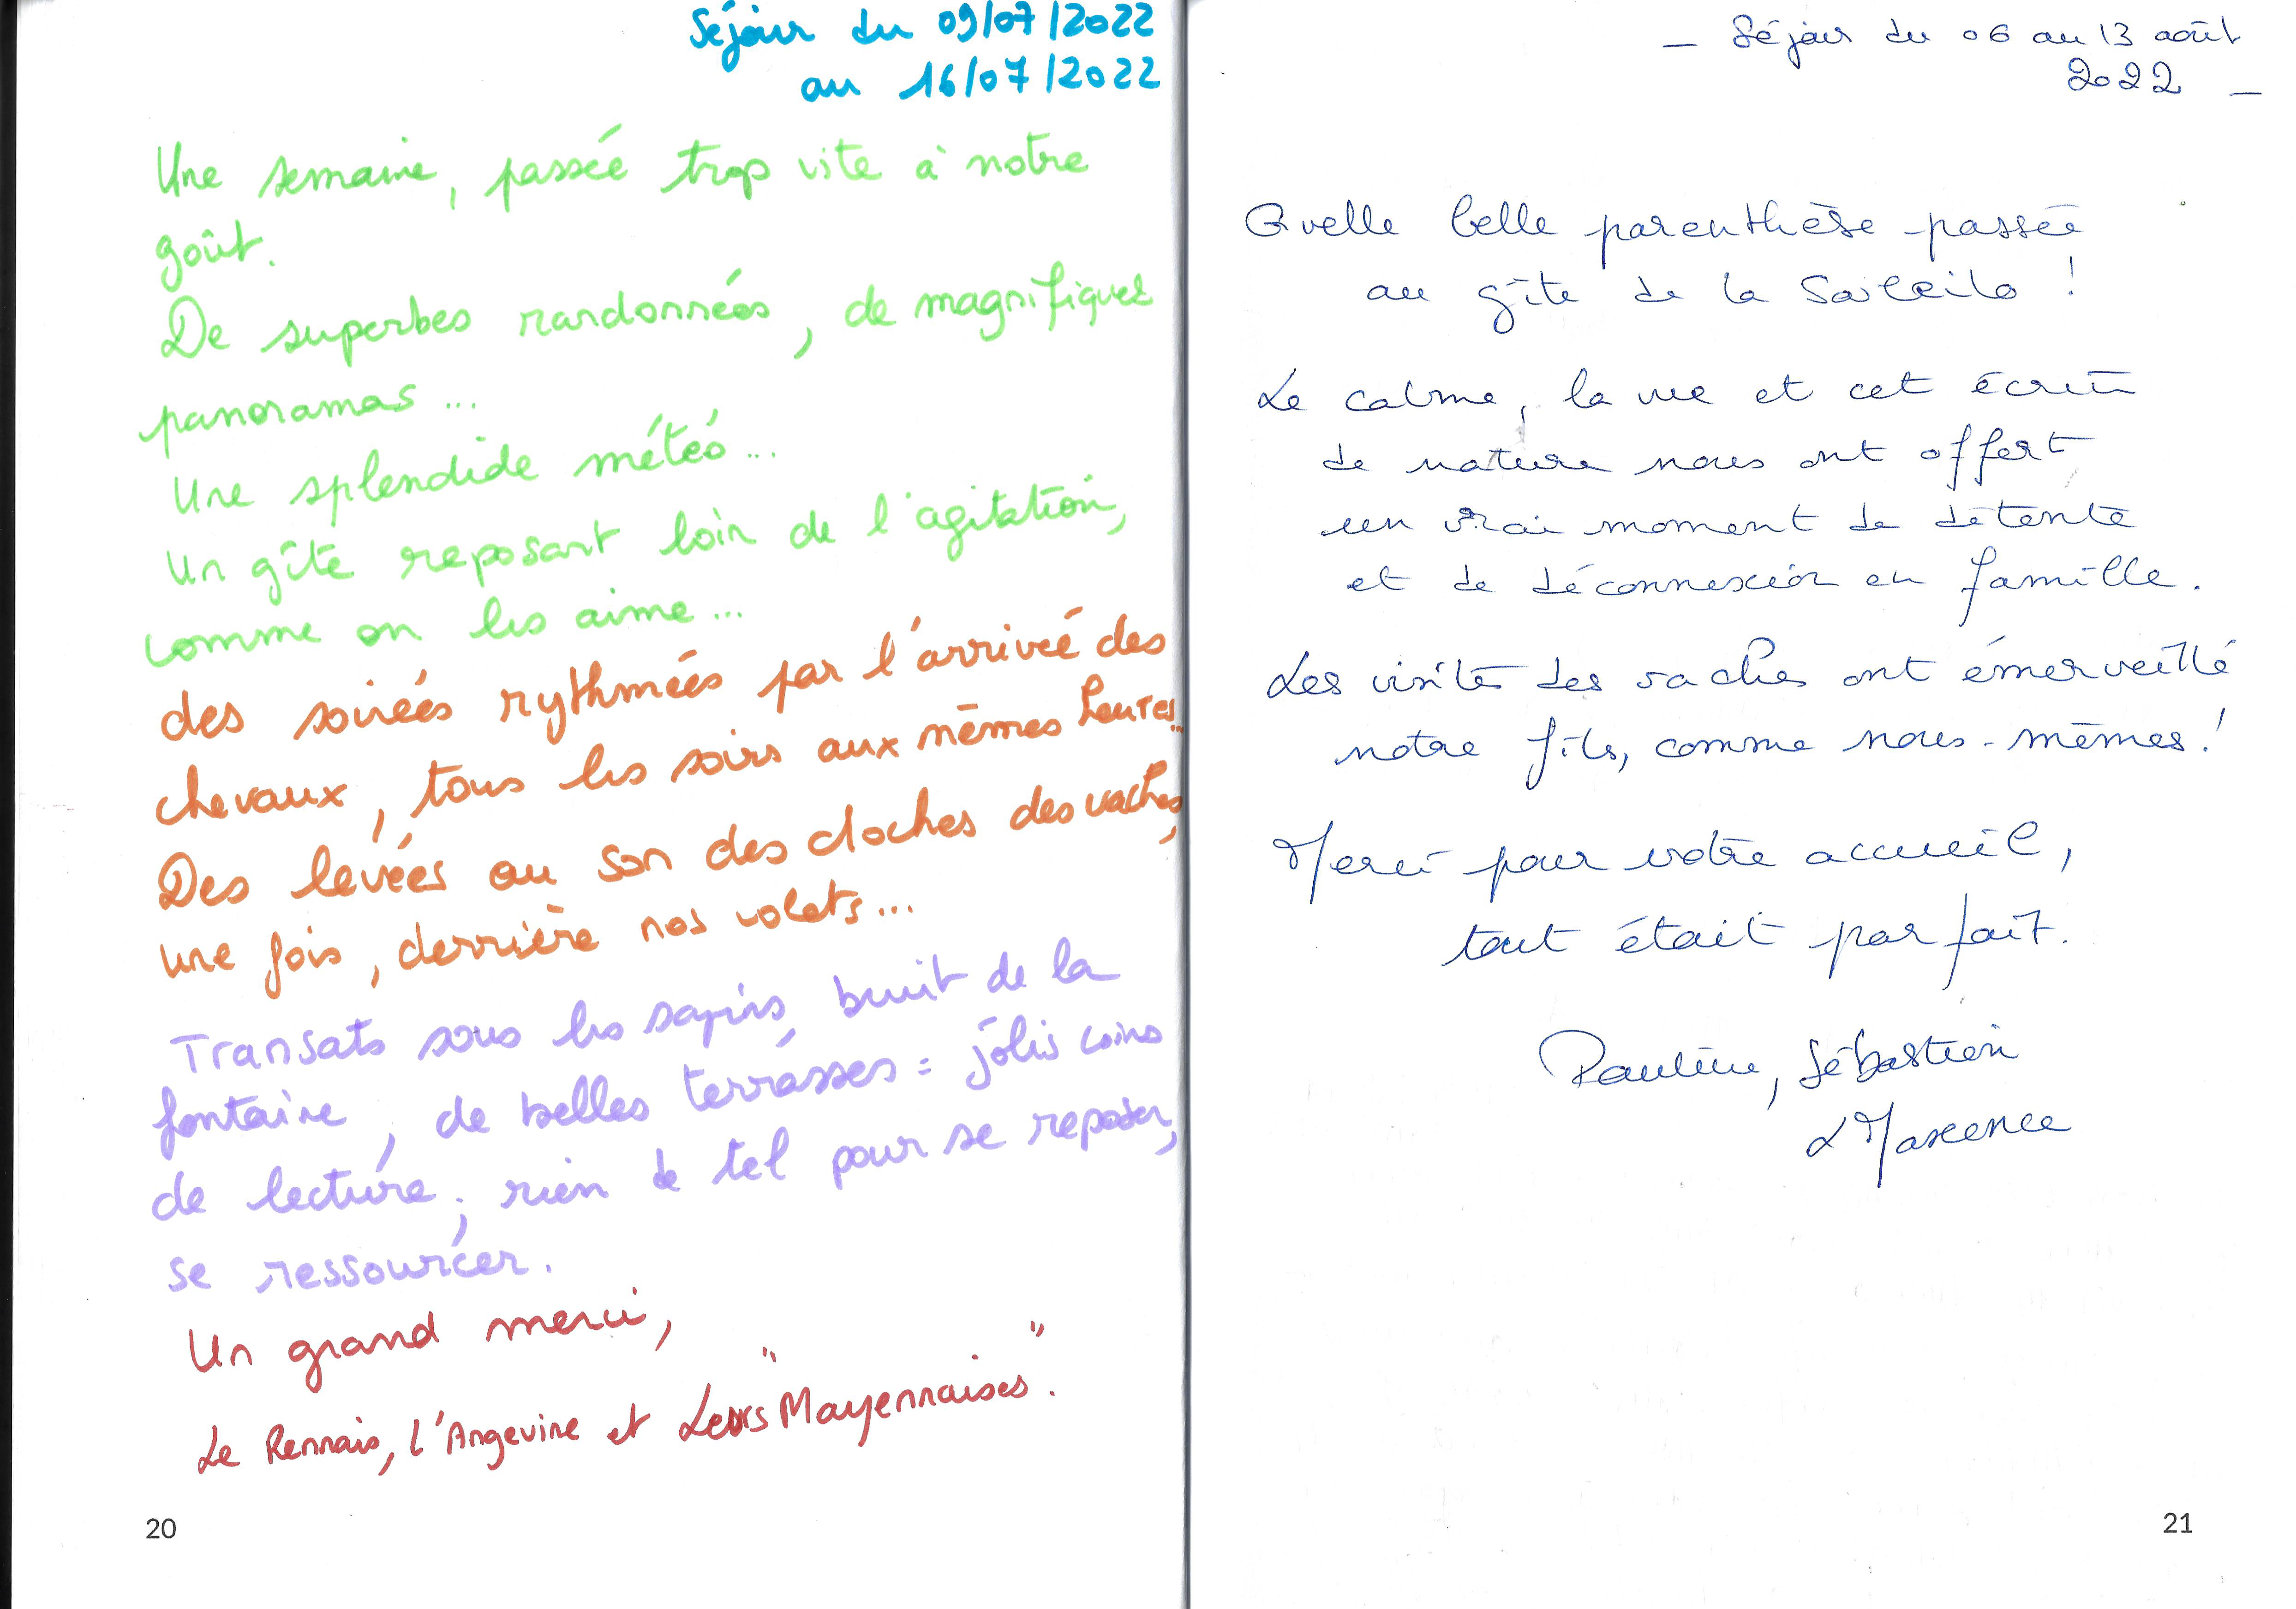 Séjour du 09/07/2022
au 16/07/2022
Une semaine, passée trop vite à notre
goût.
De superbes randonnées, de magnifiques
panoramas...
Une splendide météo...
Un gîte reposant loin de l'agitation,
comme on les aime...
des soirées rythmées par l'arrivée des
chevaux, tous les soirs aux mêmes heures...
Des levées au son des cloches des vaches,
une fois, derrière nos volets...
Transats sous les sapins, bruit de la
fontaine, de belles terrasses = jolis coins
de lecture; rien de tel pour se reposer,
se ressourcer.
Un grand merci,
Le Rennais, l'Angevine et "Leurs Mayennaises".
20
- Séjour du 06 au 13 août
2022 -
Quelle belle parenthèse passée
au gîte de la !
Le calme, la vue et cet écrin
de nature nous ont offert
un vrai moment de détente
et de déconnexion en famille.
Les visites des vaches ont émerveillé
notre fils, comme nous-mêmes!
Merci pour votre accueil,
tout était parfait.
Pauline, Sébastien
& Maxence
21